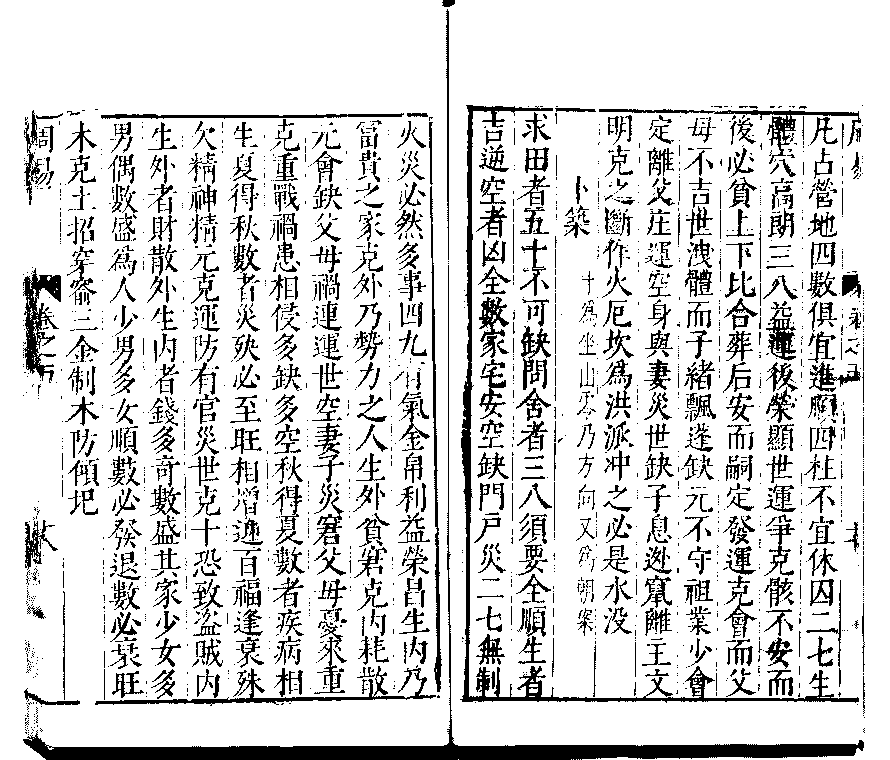 凡占營地四數俱宜進順四柱不宜休囚二七生
體穴高朗三八益運後榮顯世運爭克骸不安而
後必貧上下比合葬后安而嗣定發運克會而父
母不吉世洩體而子緒飄蓬缺元不守祖業少會
定離父庄運空身與妻災世缺子息迯竄離主文
明克之斷作火厄坎為洪派冲之必是水没
卜築
十為坐山零乃方向又為朝案
求田者五十不可缺問舍者三八須要全順生者
吉逆空者凶全數家宅安空缺門戶災二七無制
火災必然多事四九有氣金帛利益榮昌生內乃
富貴之家克外乃勢力之人生外貧窘克內耗散
元會缺父母禍連運世空妻子災窘父母憂來重
克重戰禍患相侵多缺多空秋得夏數者疾病相
生夏得秋數者災殃必至旺相增進百福逢衰殊
欠精神精元克運防有官災世克十恐致盜賊内
生外者財散外生内者錢多竒數盛其家少女多
男偶數盛為人少男多女順數必發退數必衰旺
木克土招穿窬三金制木防傾圯
周易
卷之五